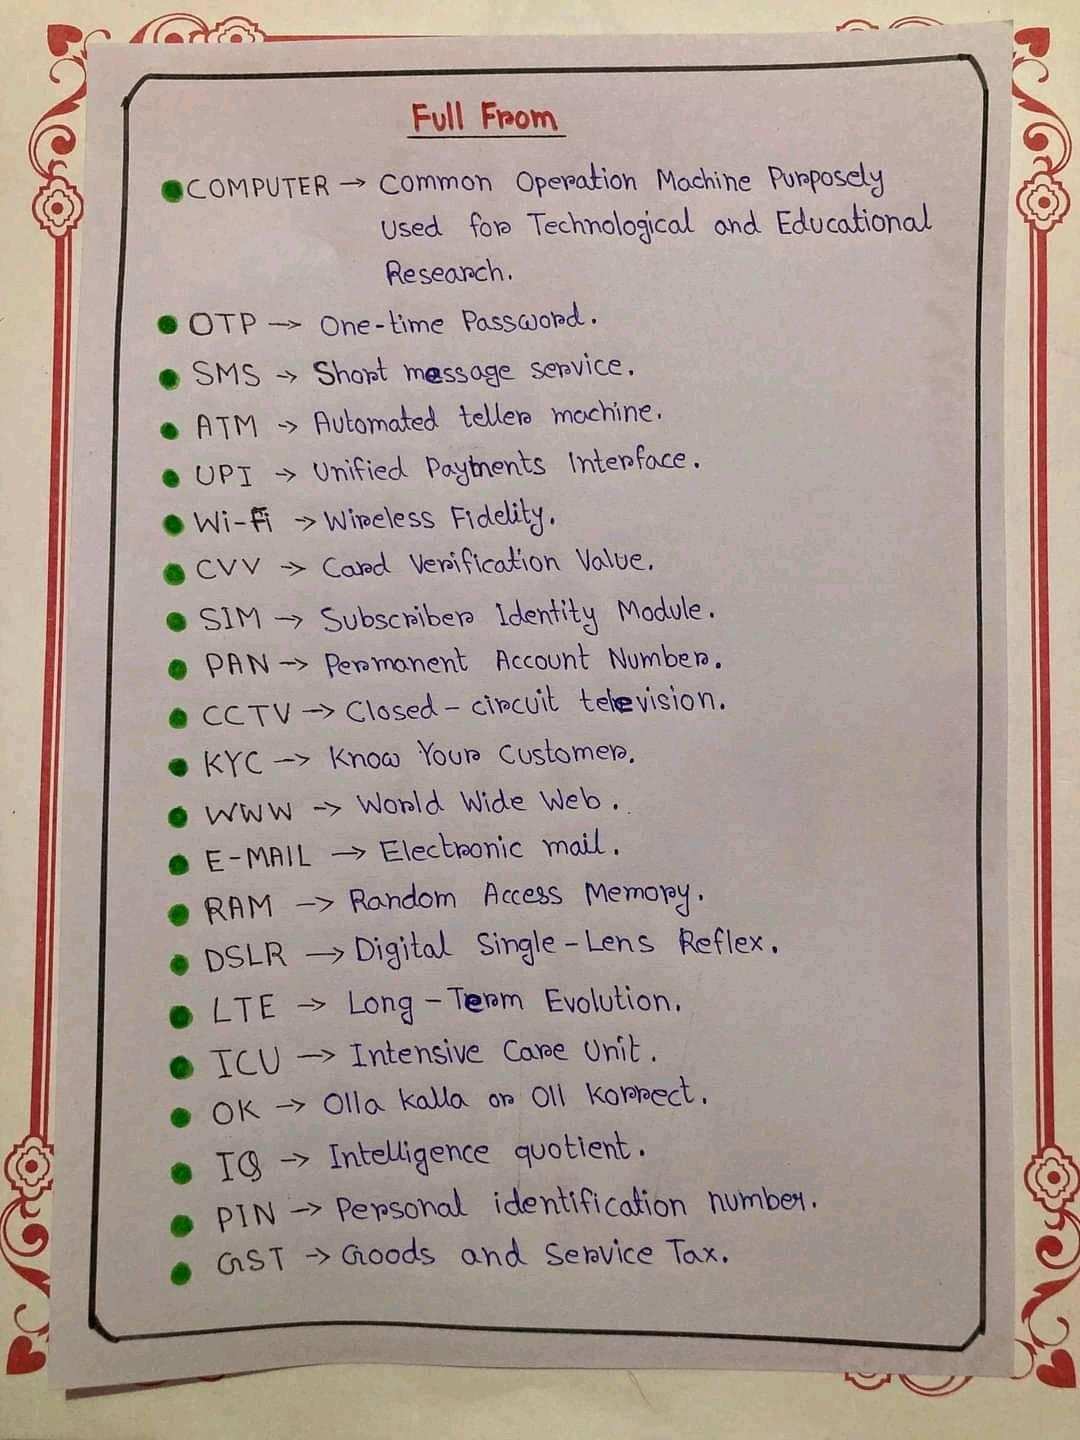 Full From
COMPUTER → Common Operation Machine Purposely
Used for Technological and Educational
Research.
OTP → One-time Password.
SMS → Short message service.
ATM → Automated teller machine.
UPI → Unified Payments Interface.
Wi-Fi → Wireless Fidelity.
CVV → Card Verification Value.
SIM → Subscriber Identity Module.
PAN → Permanent Account Number.
CCTV → Closed-circuit television.
KYC → Know Your Customer.
WWW → World Wide Web.
E-MAIL → Electronic mail.
RAM → Random Access Memory.
DSLR → Digital Single-Lens Reflex.
LTE → Long-Term Evolution.
ICU → Intensive Care Unit.
OK → Olla Kalla or Oll Korrect.
IQ → Intelligence quotient.
PIN → Personal identification number.
GST → Goods and Service Tax.